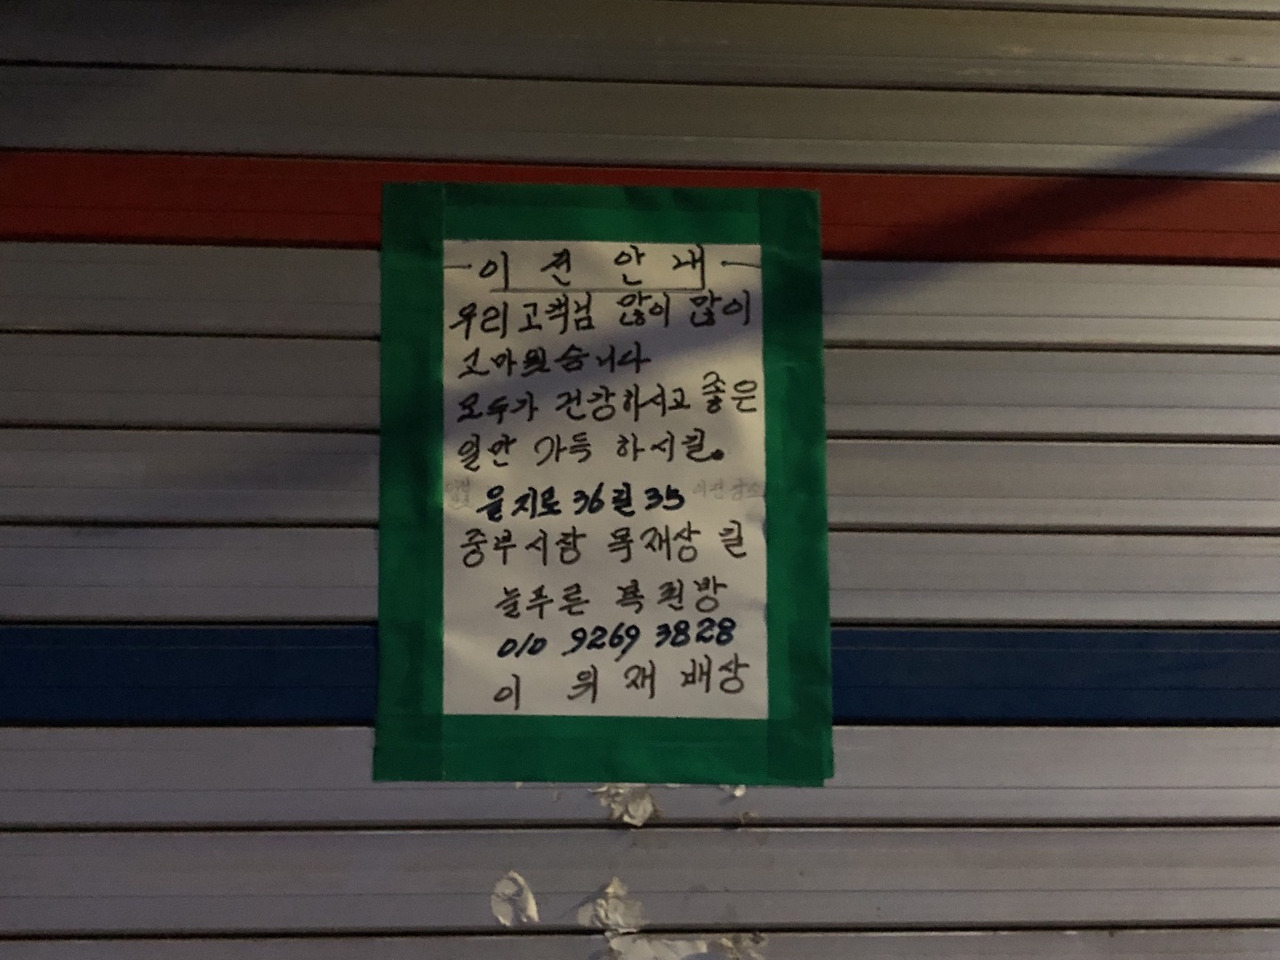 이전안내
우리고객님 많이 많이
고마웠습니다
모두가 건강하시고 좋은
일만 가득 하시길.
을지로36길 35
중부시장 목재상 길
늘푸른 복권방
010 9269 3828
이 재 배상